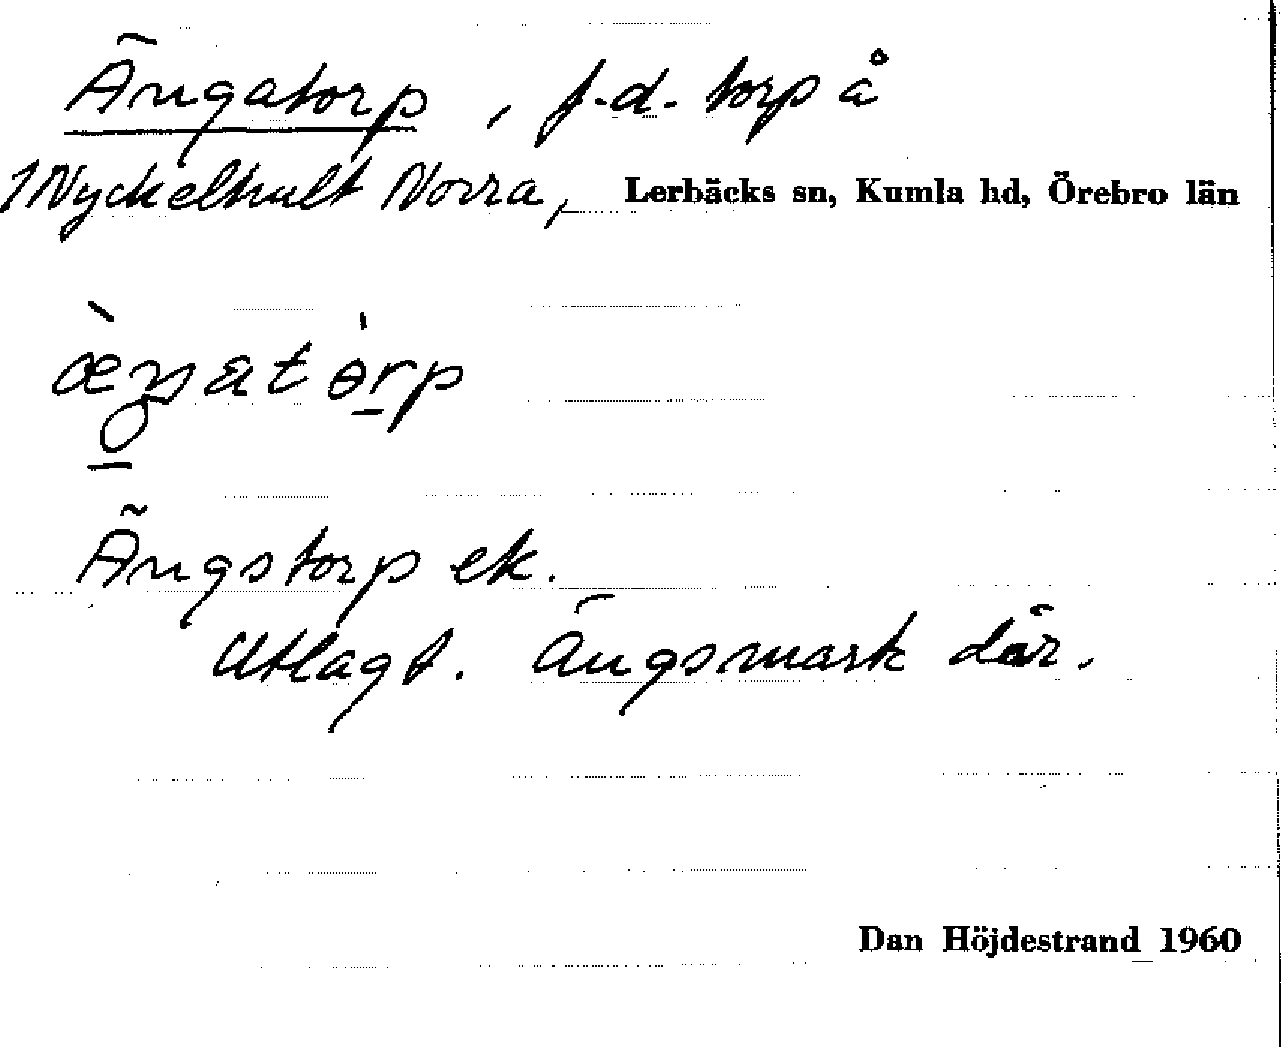 Ängatorp, f.d. torp å
Nyckelhult Norra, Lerbäcks sn, Kumla hd, Örebro län
Ängstorp ek.
Utlagt. Ängsmark där.
Dan Höjdestrand 1960